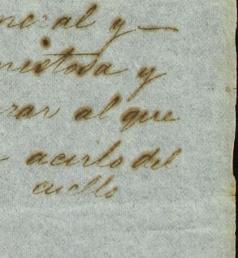 neral y —
mistosa y
rar al que
acirlo del
cuello